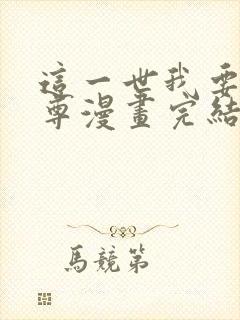 這一世我要
尊漫畫完結
馬競第